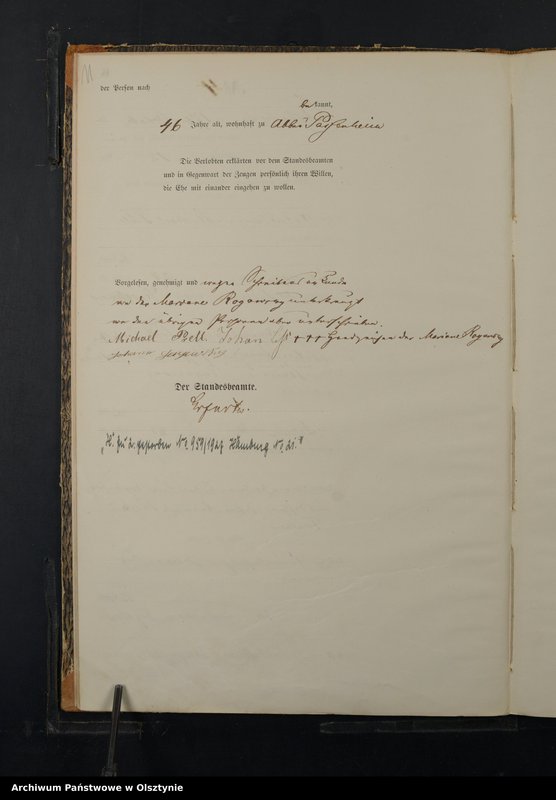 11
der Person nach
be kannt,
46 Jahre alt, wohnhaft zu Abbau Passenheim
Die Verlobten erklärten vor dem Standesbeamten
und in Gegenwart der Zeugen persönlich ihren Willen,
die Ehe mit einander eingehen zu wollen.
Vorgelesen, genehmigt und wegen Schreibens
von der Mariane unterkreuzt
von den übrigen Personen aber unterschrieben.
Michael Johan +++ Handzeichen der Mariane
Johann
Der Standesbeamte.
gestorben Nr. 959/1927 Hamburg
Archiwum Państwowe w Olsztynie